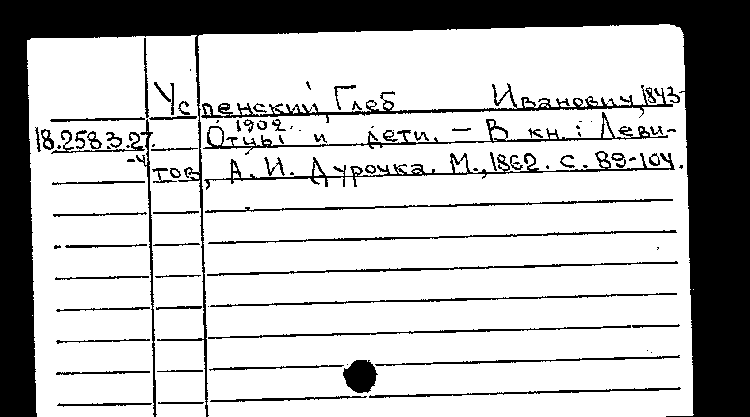 Успенский, Глеб Иванович, 1843-
1902.
18.258.3.27. Отцы и дети. – В кн.: Леви-
-4 тов, А. И. Дурочка. М., 1862. с. 89-104.